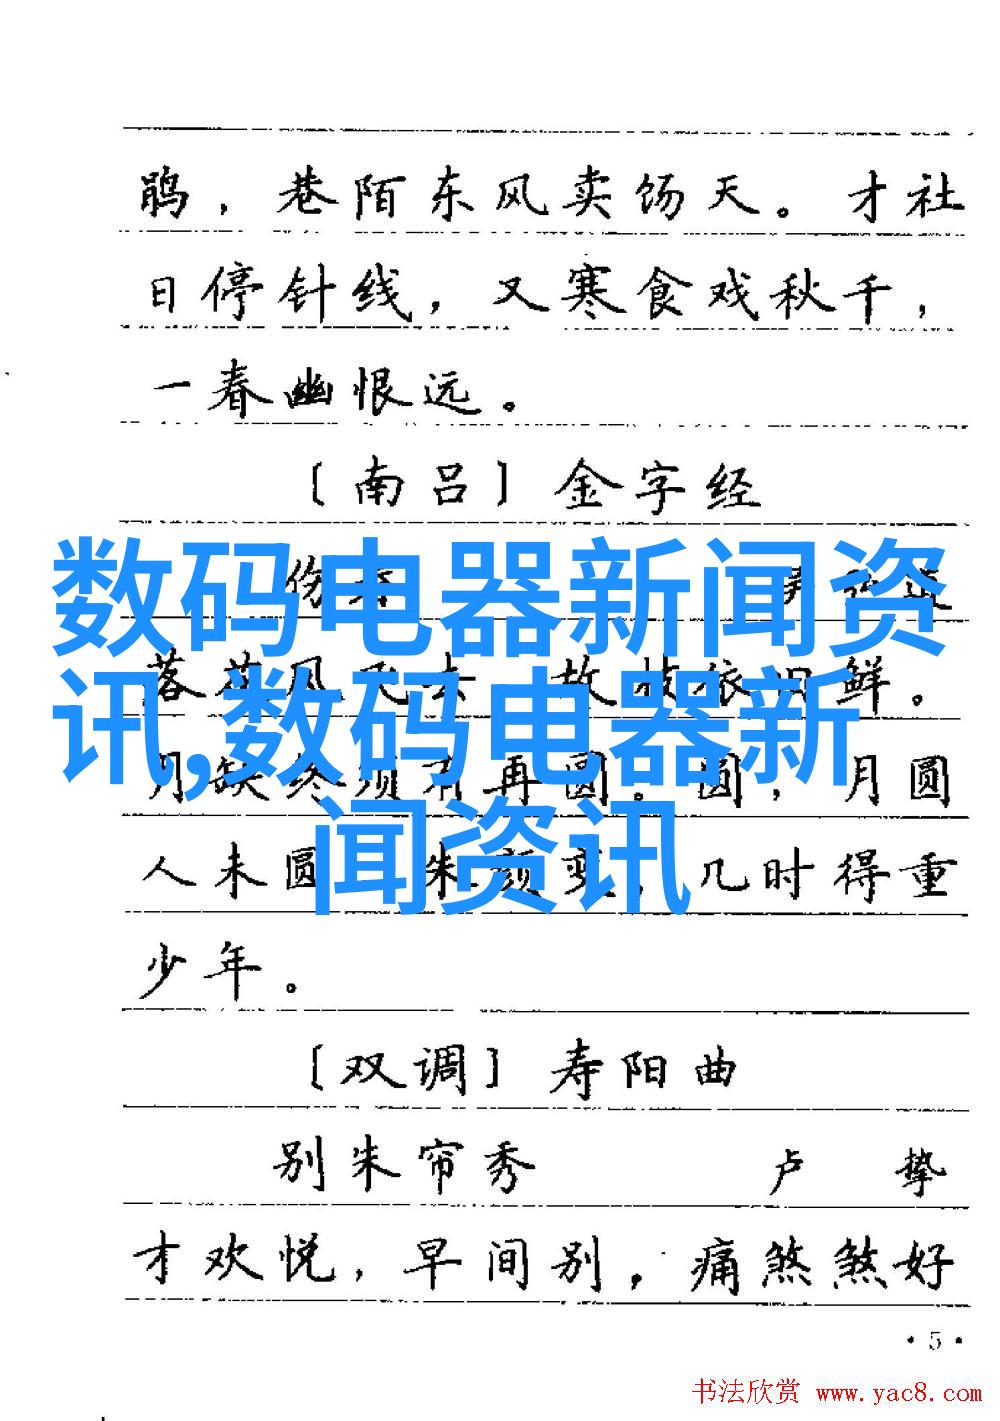 鹃，巷陌东风卖饧天。才社
日停针线，又寒食戏秋千，
一春幽恨远。
〔南吕〕金字经
伤
数码电器新闻资
落 风 去 故枝依旧鲜。
讯,数码电器新
月缺终须有再圆。圆，月圆
闻资讯
人未圆 朱颜变，几时得重
少年。
〔双调〕寿阳曲
别朱帘秀 卢 挚
才欢悦，早间别，痛煞煞好
·5·
书法欣赏 www.yac8.com